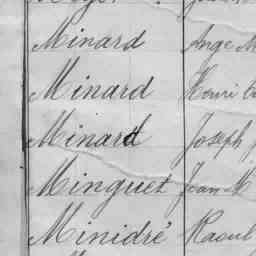 Minard Ange
Minard Henri
Minard Joseph
Minguet Jean M
Minidré Raoul